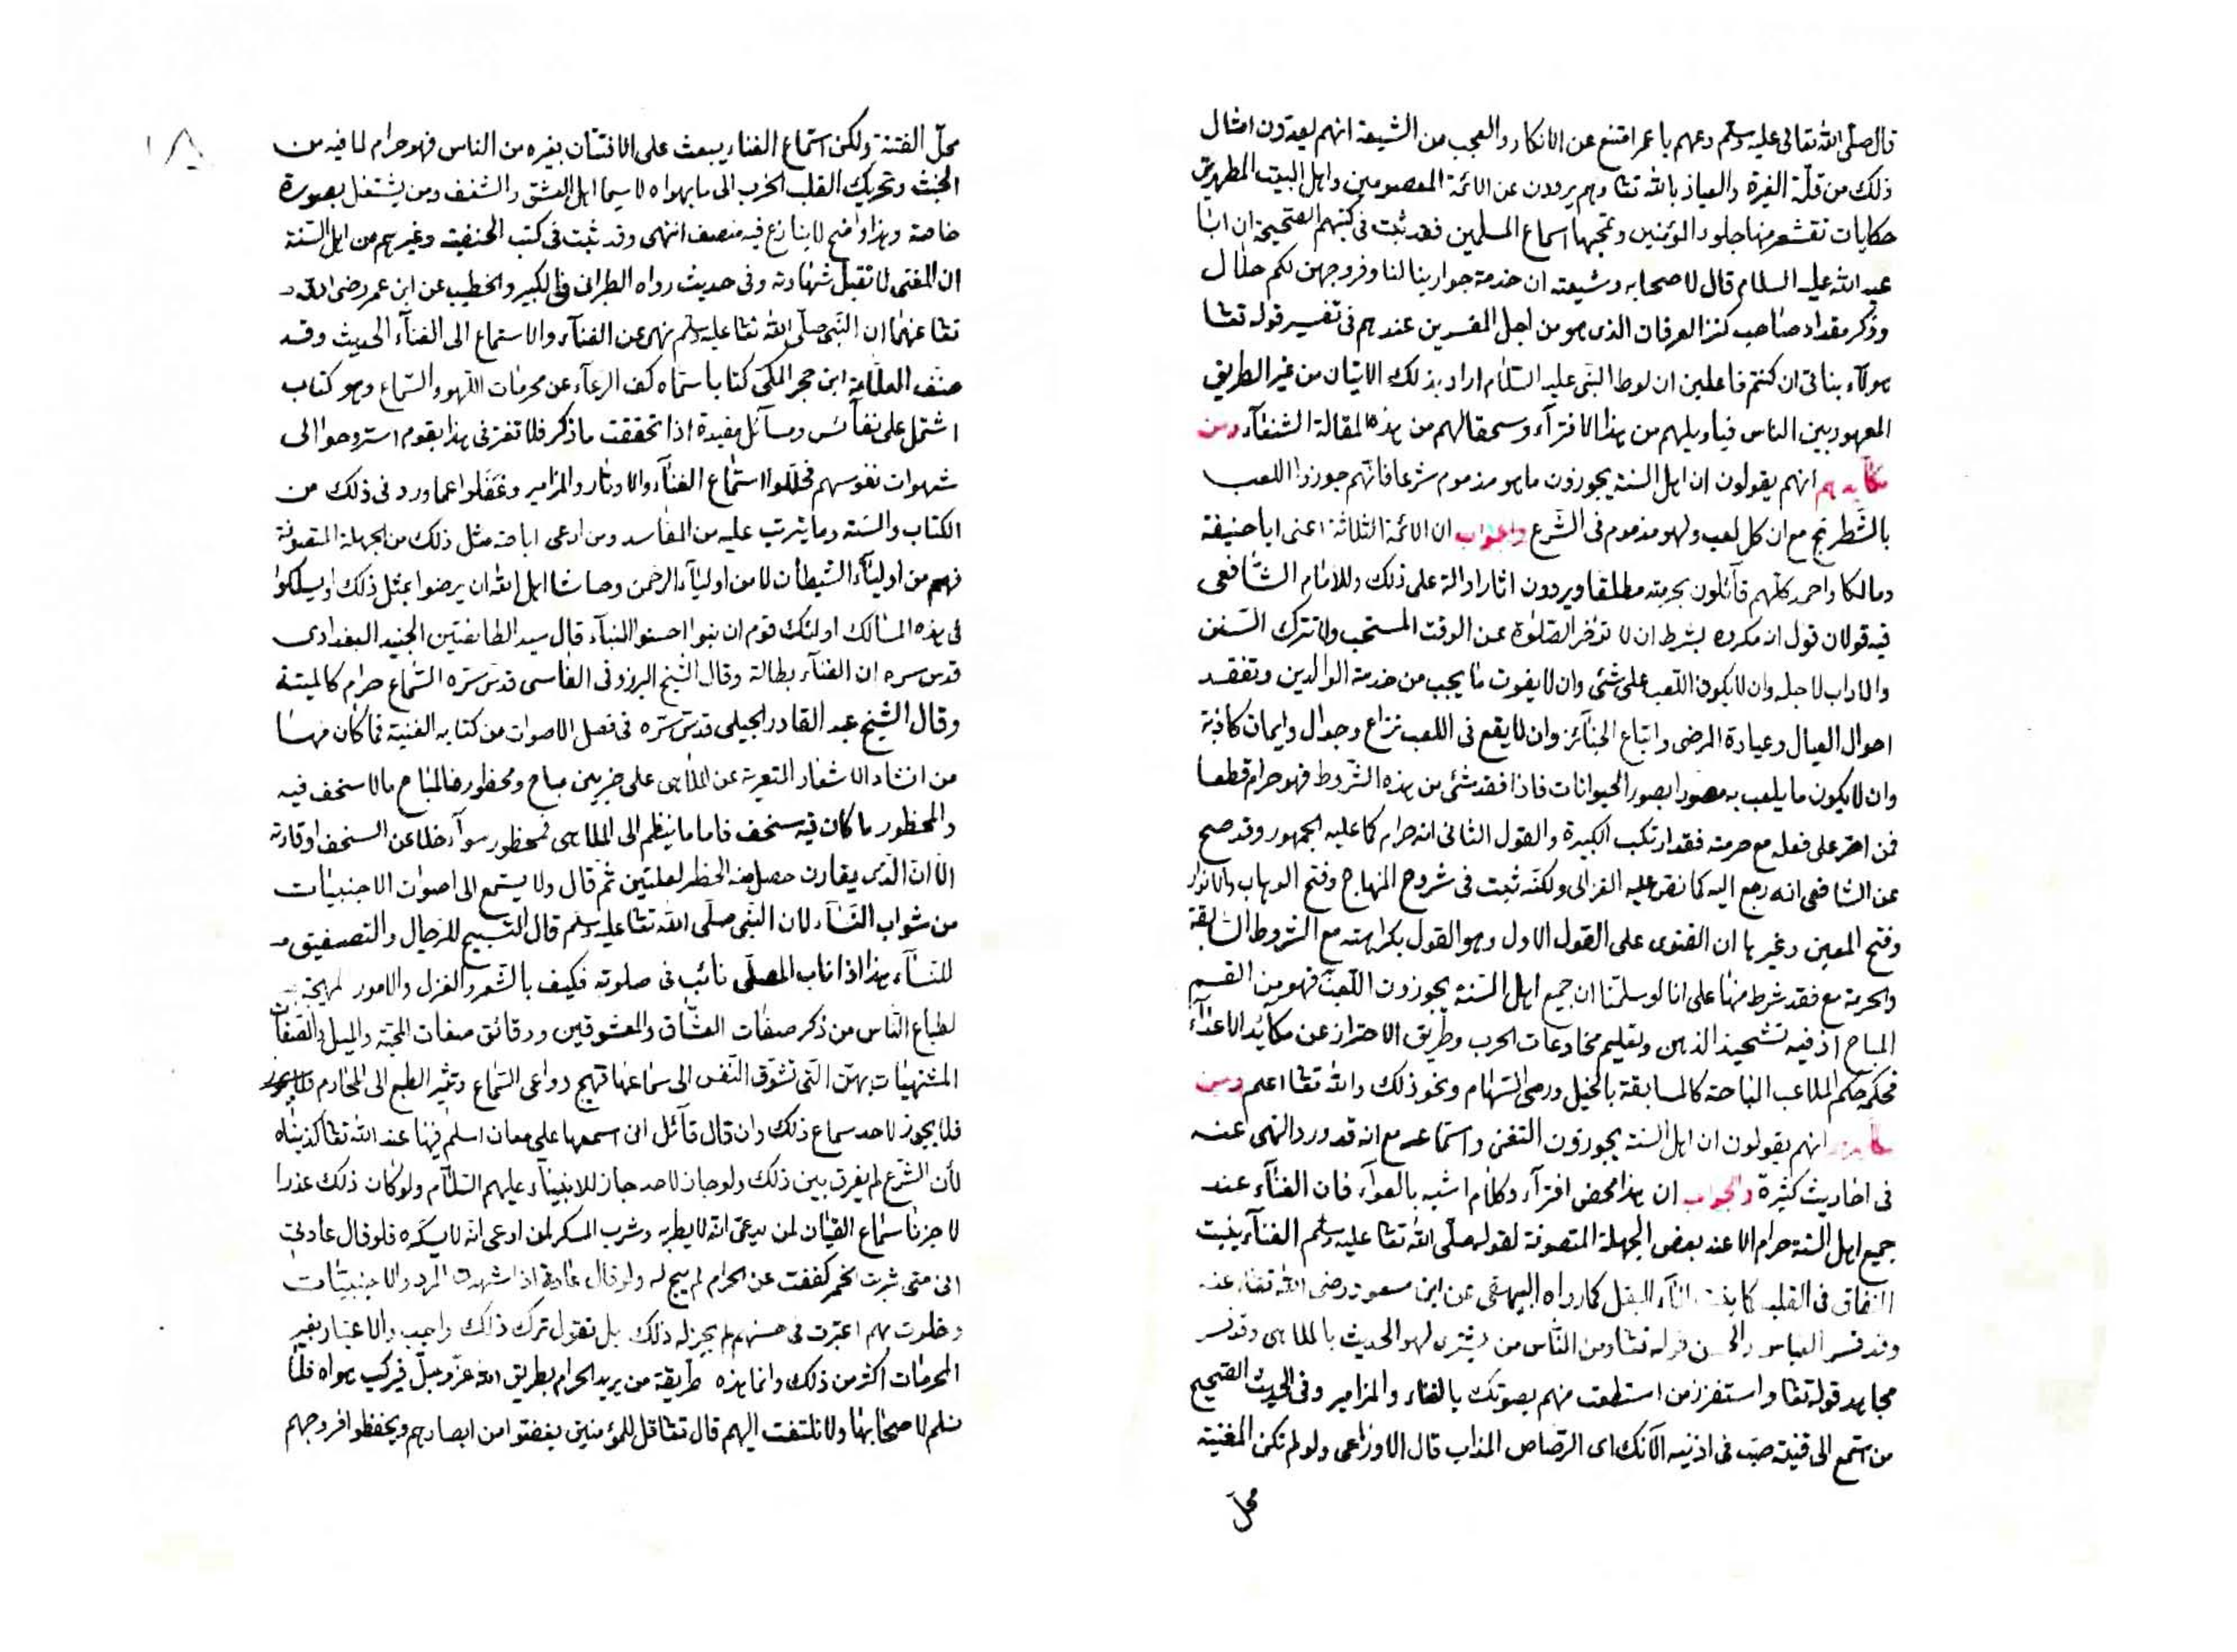 قال صلى الله تعالى عليه وسلم دعهم يا عمر امتنع عن الانكار والعجب من الشيعة انهم يعدون امثال
ذلك من قلة الغيرة والعياذ بالله تعا وهم يروون عن الائمة المعصومين واهل البيت المطهرين
حكايات تقشعر منها جلود المؤمنين وتمجها اسماع المسلمين فقد ثبت فى كتبهم الصحيحة ان ابا
عبد الله عليه السلام قال لاصحابه وشيعته ان خدمة جوارينا لنا وفروجهن لكم حلال
وذكر مقداد صاحب كنز العرفان الذى هو من اجل المفسرين عندهم فى تفسير قوله تعا
هولاء بناتى ان كنتم فاعلين ان لوط النبى عليه السلام اراد بذلك الاتيان من غير الطريق
المعهود بين الناس فياويلهم من هذا الافتراء وسحقا لهم من هذه المقالة الشنعاء ومن
مكايدهم انهم يقولون ان اهل السنة يجوزون ما هو مذموم شرعا فانهم جوزوا اللعب
بالشطرنج مع ان كل لعب ولهو مذموم فى الشرع والجواب ان الائمة الثلاثة اعنى ابا حنيفة
ومالكا واحمد كلهم قائلون بحرمته مطلقا ويروون اثارا دالة على ذلك وللامام الشافعى
فيه قولان قول انه مكروه بشرط ان لا تؤخر الصلوة عن الوقت المستحب ولا تترك السنن
والاداب لاجله وان لا يكون اللعب على شئ وان لا يفوت ما يجب من خدمة الوالدين وتفقد
احوال العيال وعيادة المرضى واتباع الجنائز وان لا يقع فى اللعب نزاع وجدال وايمان كاذبة
وان لا يكون ما يلعب به مصورا بصور الحيوانات فاذا فقد شئ من هذه الشروط فهو حرام قطعا
فمن اصر على فعله مع حرمته فقد ارتكب الكبيرة والقول الثانى انه حرام كما عليه الجمهور وقد صح
عن الشافعى انه رجع اليه كما نص عليه الغزالى ولكنه ثبت فى شروح المنهاج وفتح الوهاب والانوار
وفتح المعين وغيرها ان الفتوى على القول الاول وهو القول بكراهته مع الشروط السابقة
والحرمة مع فقد شرط منها على انا لو سلمنا ان جميع اهل السنة يجوزون اللعب فهو من القسم
المباح اذ فيه تشحيذ الذهن وتعليم مخادعات الحرب وطريق الاحتراز عن مكائد الاعداء
فحكمه حكم الملاعب المباحة كالمسابقة بالخيل ورمى السهام ونحو ذلك والله تعا اعلم ومن
انهم يقولون ان اهل السنة يجوزون التغنى واستماعه مع انه قد ورد النهى عنه
فى احاديث كثيرة والجواب ان هذا محض افتراء وكلام اشبه بالعواء فان الغناء عند
جميع اهل السنة حرام الا عند بعض الجهلة المتصوفة لقوله صلى الله تعا عليه وسلم الغناء ينبت
النفاق فى القلب كما ينبت الماء البقل كما رواه البيهقى عن ابن مسعود رضى الله تعا عنه
وقد فسر العباس والحسن قوله تعا ومن الناس من يشترى لهو الحديث بالملاهى وقد فسر
مجاهد قوله تعا واستفزز من استطعت منهم بصوتك بالغناء والمزامير وفى الحديث الصحيح
من استمع الى قينة صب فى اذنيه الآنك اى الرصاص المذاب قال الاوزاعى ولو لم تكن المغنية
محل
١٨
محل الفتنة ولكن استماع الغناء يبعث على الافتتان بغيره من الناس فهو حرام لما فيه من
الخبث وتحريك القلب الخرب الى ما يهواه لا سيما اهل العشق والشغف ومن يشتغل بصورة
خاصة وهذا واضح لا ينازع فيه منصف انتهى وقد ثبت فى كتب الحنفية وغيرهم من اهل السنة
ان المغنى لا تقبل شهادته وفى حديث رواه الطبرانى فى الكبير والخطيب عن ابن عمر رضى الله
تعا عنهما ان النبى صلى الله تعا عليه وسلم نهى عن الغناء والاستماع الى الغناء الحديث وقد
صنف العلامة ابن حجر المكى كتابا سماه كف الرعاء عن محرمات اللهو والسماع وهو كتاب
اشتمل على نفائس ومسائل مفيدة اذا تحققت ما ذكر فلا تغتر فى هذا بقوم استروحوا الى
شهوات نفوسهم فحللوا استماع الغناء والاوتار والمزامير وغفلوا عما ورد فى ذلك من
الكتاب والسنة وما يترتب عليه من المفاسد ومن ادعى اباحة مثل ذلك من الجهلة المتصوفة
فهم من اولياء الشيطان لا من اولياء الرحمن وحاشا اهل الله ان يرضوا بمثل ذلك او يسلكوا
فى هذه المسالك اولئك قوم ان بنوا احسنوا البناء قال سيد الطائفتين الجنيد البغدادى
قدس سره ان الغناء بطالة وقال الشيخ البرزوقى الفاسى قدس سره السماع حرام كالميتة
وقال الشيخ عبد القادر الجيلى قدس سره فى فصل الاصوات من كتابه الغنية فما كان منها
من انشاد الاشعار المتعرية عن الملاهى على ضربين مباح ومحظور فالمباح ما لا سخف فيه
والمحظور ما كان فيه سخف فاما ما ينظم الى الملاهى فمحظور سواء خلا عن السخف او قارنه
الا ان الذى يقارن حصل منه الحظر لعلتين ثم قال ولا يستمع الى اصوات الاجنبيات
من شواب النساء لان النبى صلى الله تعا عليه وسلم قال التسبيح للرجال والتصفيق
للنساء هذا اذا ناب المصلى نائب فى صلوته فكيف بالشعر والغزل والامور المهيجة
لطباع الناس من ذكر صفات العشاق والمعشوقين ودقائق صفات المحبة والميل والصفات
المشتهيات بهن التى تشوق النفس الى سماعها فتهيج دواعى السماع وتثير الطبع الى المحارم فلا يجوز
فلا يجوز لاحد سماع ذلك وان قال قائل انى اسمعها على معان اسلم فيها عند الله تعا كذبناه
لأن الشرع لم يفرق بين ذلك ولو جاز لاحد جاز للانبياء عليهم السلام ولو كان ذلك عذرا
لاجزنا سماع القيان لمن يدعى انه لا يطربه وشرب المسكر لمن ادعى انه لا يسكره فلو قال عادتى
انى متى شربت الخمر كففت عن الحرام لم يبح له ولو قال عادتى اذا شهدت المرد والاجنبيات
وخلوت بهم اعتبرت فى حسنهم لم يجز له ذلك بل نقول ترك ذلك واجب والاعتبار بغير
المحرمات اكثر من ذلك وانما هذه طريقة من يريد الحرام بطريق الله عز وجل فيركب هواه فلا
نسلم لاصحابها ولا نلتفت اليهم قال تعا قل للمؤمنين يغضوا من ابصارهم ويحفظوا فروجهم